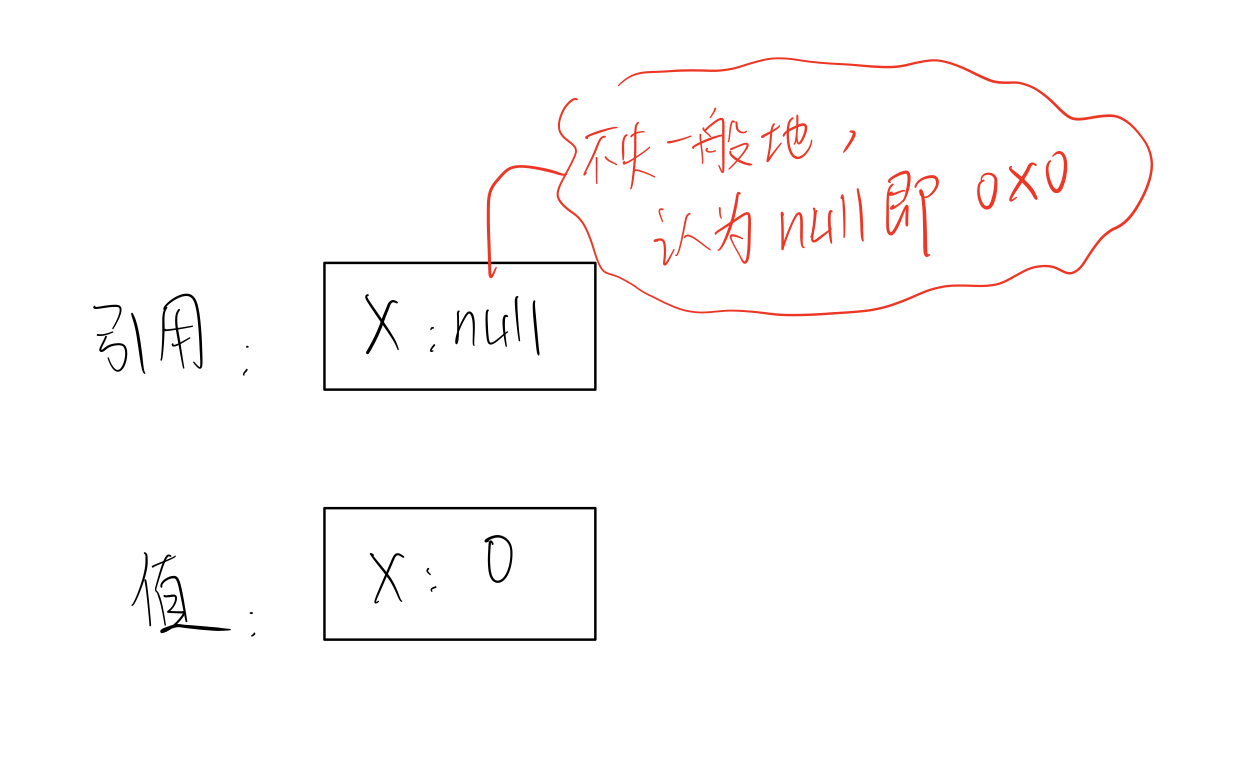 不失一般地，
认为null即 0x0
引用： X：null
值： X：0